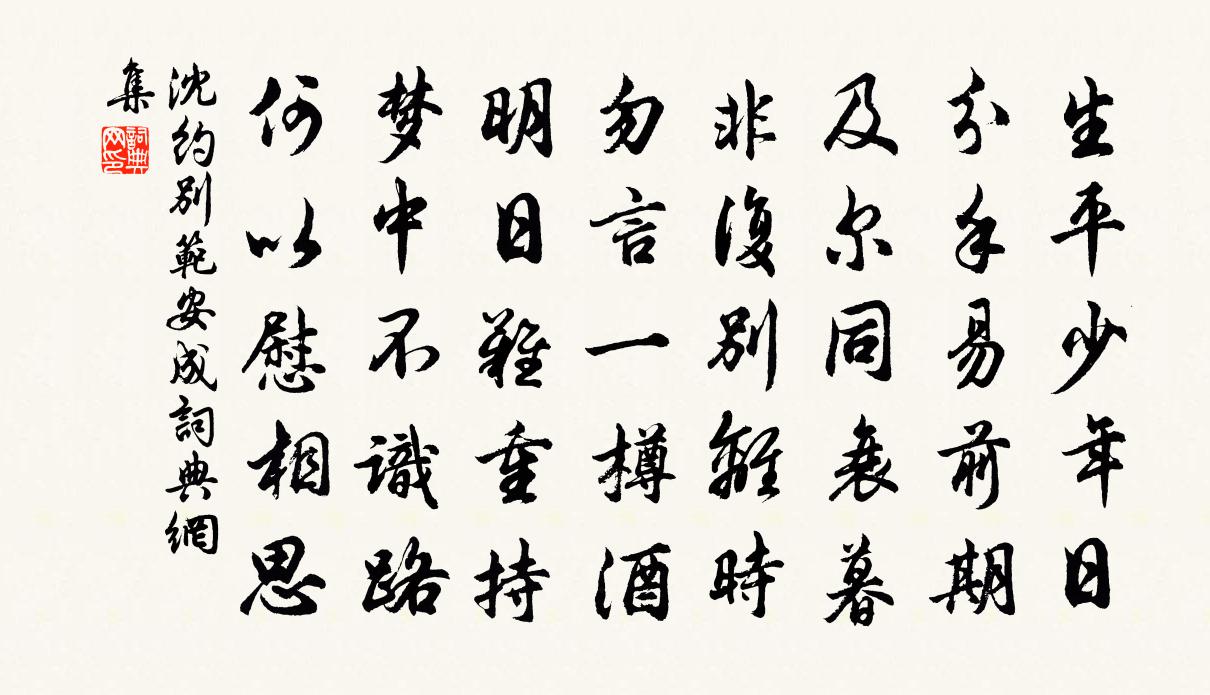 生平少年日
分手易前期
及尔同衰暮
非復别離時
勿言一樽酒
明日難重持
梦中不識路
何以慰相思
沈約别範安成詞典網
集
詞典
网印